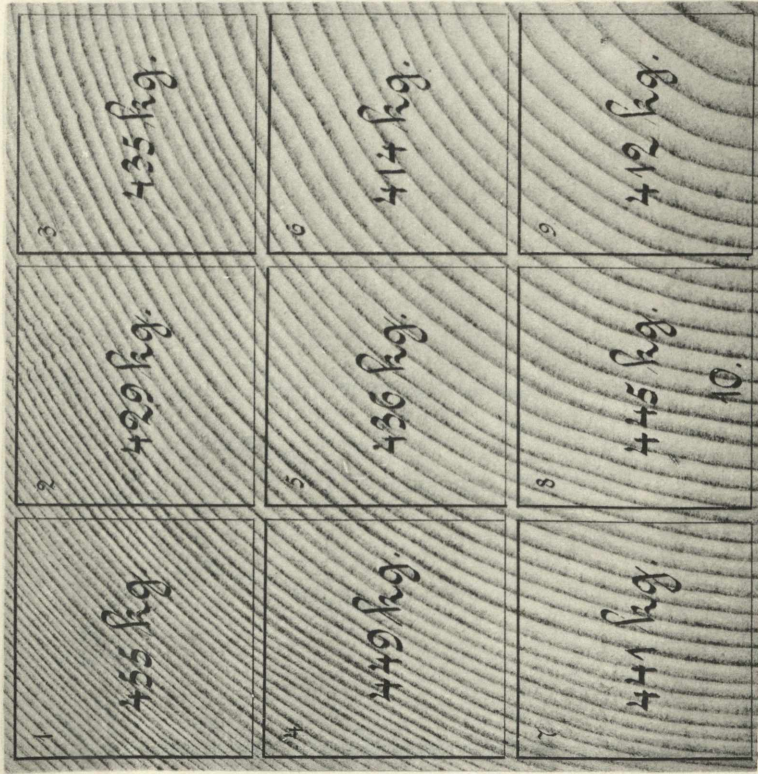 1
455 kg.
2
429 kg.
3
435 kg.
4
449 kg.
5
436 kg.
6
414 kg.
7
441 kg
8
445 kg.
10.
9
412 kg.